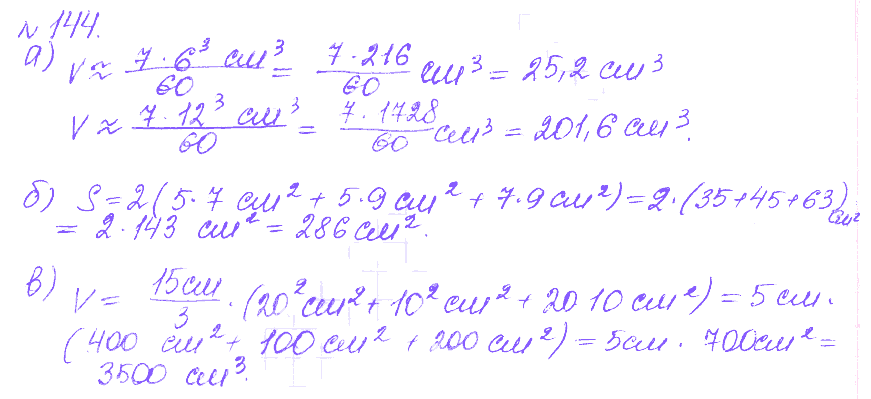 № 144.
а) V ≈ 7·6³ см³/60 = 7·216/60 см³ = 25,2 см³
V ≈ 7·12³ см³/60 = 7·1728/60 см³ = 201,6 см³.
б) S = 2(5·7 см² + 5·9 см² + 7·9 см²) = 2·(35+45+63) см²
= 2·143 см² = 286 см².
в) V = 15см/3 · (20² см² + 10² см² + 20 10 см²) = 5 см ·
(400 см² + 100 см² + 200 см²) = 5см · 700см² =
3500 см³.